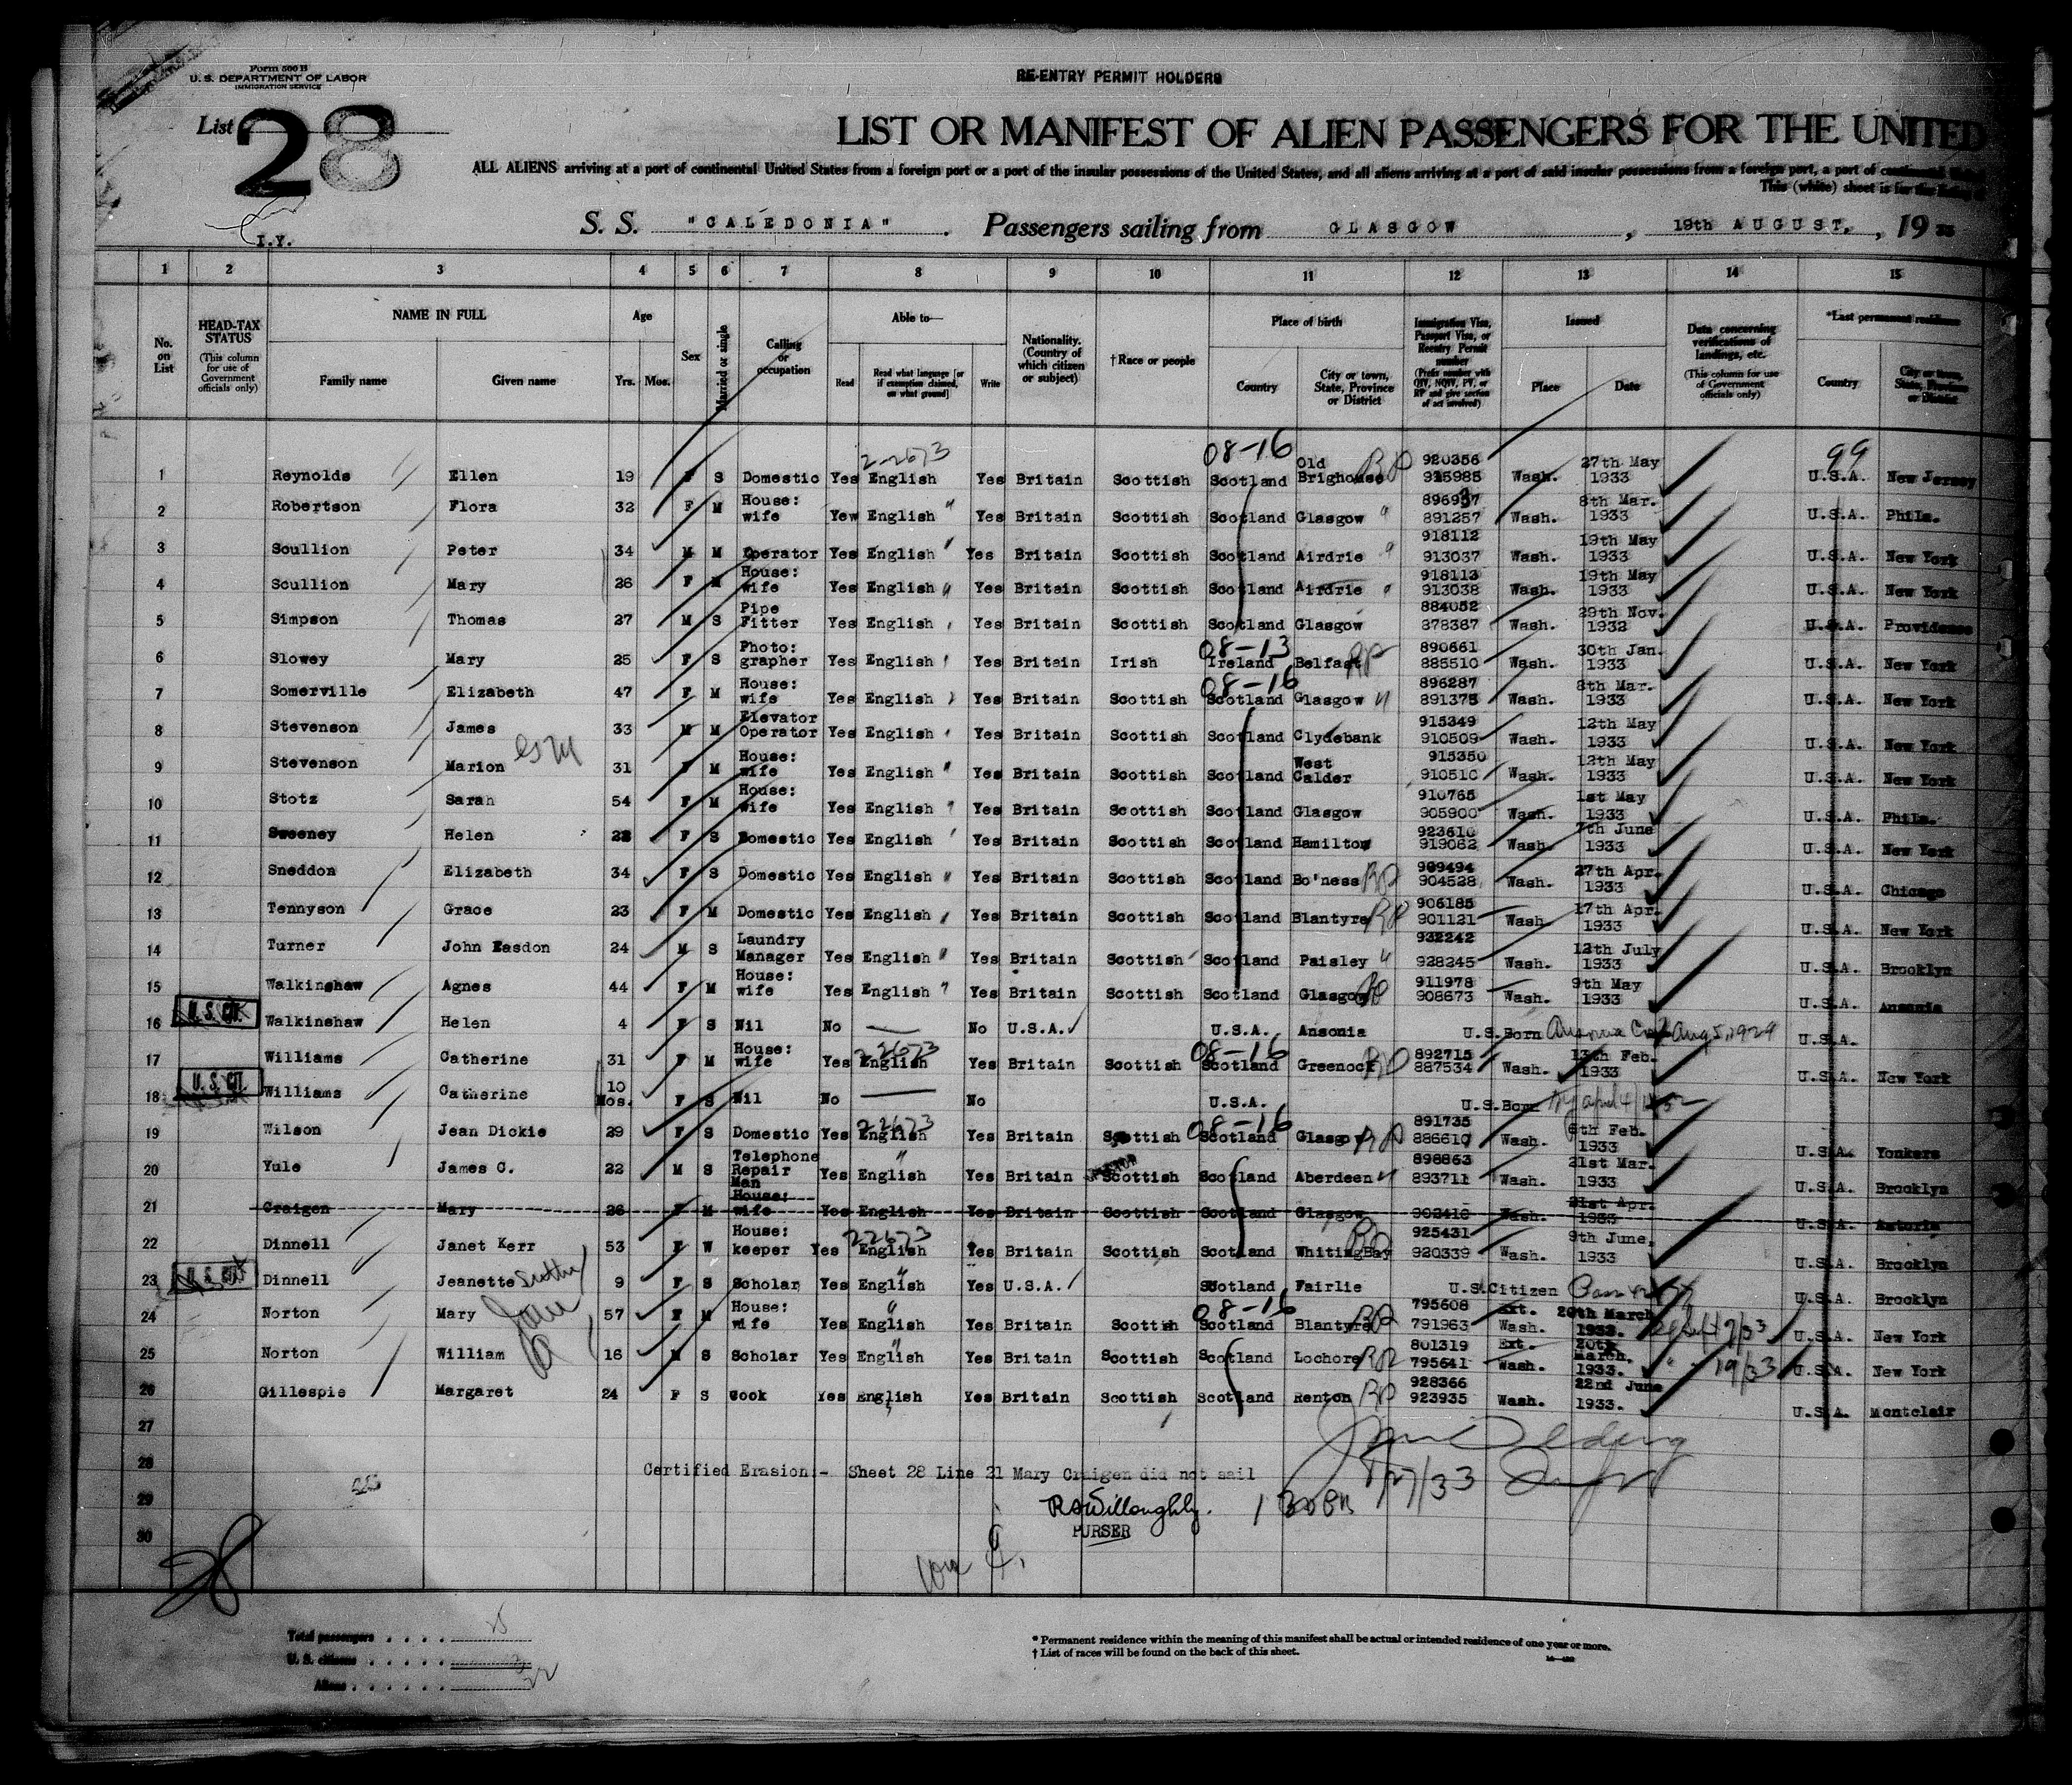 Form 500 B
U. S. DEPARTMENT OF LABOR
IMMIGRATION SERVICE
RE-ENTRY PERMIT HOLDERS
List 28
LIST OR MANIFEST OF ALIEN PASSENGERS FOR THE UNITED
ALL ALIENS arriving at a port of continental United States from a foreign port or a port of the insular possessions of the United States, and all aliens arriving at a port of said insular possessions from a foreign port, a port of continental
This (white) sheet is for the
I.Y.
S. S. "CALEDONIA" . Passengers sailing from GLASGOW , 19th AUGUST, , 19 33
1 2 3 4 5 6 7 8 9 10 11 12 13 14 15
No. on List
HEAD-TAX STATUS (This column for use of Government officials only)
NAME IN FULL Family name Given name
Age Yrs. Mos.
Sex
Married or single
Calling or occupation
Able to— Read Read what language [or if exemption claimed, on what ground] Write
Nationality. (Country of which citizen or subject)
†Race or people
Place of birth Country City or town, State, Province or District
Immigration Visa, Passport Visa, or Reentry Permit number (Prefix number with QIV, NQIV, PV, or RP and give section of act involved)
Issued Place Date
Data concerning verifications of landings, etc. (This column for use of Government officials only)
*Last permanent residence Country City or town, State, Province or District
2-2673 08-16 99
1 Reynolds Ellen 19 F S Domestic Yes English Yes Britain Scottish Scotland Old Brighouse RP 920356 915985 Wash. 27th May 1933 U.S.A. New Jersey
2 Robertson Flora 32 F M House: wife Yew English " Yes Britain Scottish Scotland Glasgow " 896937 891257 Wash. 8th Mar. 1933 U.S.A. Phila.
3 Scullion Peter 34 M M Operator Yes English " Yes Britain Scottish Scotland Airdrie " 918112 913037 Wash. 19th May 1933 U.S.A. New York
4 Scullion Mary 26 F M House: wife Yes English " Yes Britain Scottish Scotland Airdrie " 918113 913038 Wash. 19th May 1933 U.S.A. New York
5 Simpson Thomas 27 M S Pipe Fitter Yes English Yes Britain Scottish Scotland Glasgow 884052 878387 Wash. 29th Nov. 1932 U.S.A. Providence
08-13
6 Slowey Mary 25 F S Photo: grapher Yes English Yes Britain Irish Ireland Belfast RP 890661 885510 Wash. 30th Jan. 1933 U.S.A. New York
08-16
7 Somerville Elizabeth 47 F M House: wife Yes English Yes Britain Scottish Scotland Glasgow " 896287 891375 Wash. 8th Mar. 1933 U.S.A. New York
8 Stevenson James 33 M M Elevator Operator Yes English Yes Britain Scottish Scotland Clydebank 915349 910509 Wash. 12th May 1933 U.S.A. New York
9 Stevenson Marion 31 F M House: wife Yes English " Yes Britain Scottish Scotland West Calder 915350 910510 Wash. 12th May 1933 U.S.A. New York
10 Stotz Sarah 54 F M House: wife Yes English " Yes Britain Scottish Scotland Glasgow 910765 905900 Wash. 1st May 1933 U.S.A. Phila.
11 Sweeney Helen F S Domestic Yes English Yes Britain Scottish Scotland Hamilton 923610 919062 Wash. 7th June 1933 U.S.A. New York
12 Sneddon Elizabeth 34 F S Domestic Yes English " Yes Britain Scottish Scotland Bo'ness RP 909494 904528 Wash. 27th Apr. 1933 U.S.A. Chicago
13 Tennyson Grace 23 F M Domestic Yes English Yes Britain Scottish Scotland Blantyre RP 906185 901121 Wash. 17th Apr. 1933 U.S.A. New York
14 Turner John Easdon 24 M S Laundry Manager Yes English " Yes Britain Scottish Scotland Paisley " 932242 928245 Wash. 12th July 1933 U.S.A. Brooklyn
15 Walkinshaw Agnes 44 F M House: wife Yes English " Yes Britain Scottish Scotland Glasgow RP 911978 908673 Wash. 9th May 1933 U.S.A. Ansonia
16 U.S. CIT. Walkinshaw Helen 4 F S Nil No — No U.S.A. U.S.A. Ansonia U.S.Born Ansonia Aug 5, 1929 U.S.A.
2-2673 08-16
17 Williams Catherine 31 F M House: wife Yes English Yes Britain Scottish Scotland Greenock RP 892715 887534 Wash. 13th Feb. 1933 U.S.A. New York
18 U.S. CIT. Williams Catherine 10 Mos. F S Nil No — No U.S.A. U.S.Born
2-2673 08-16
19 Wilson Jean Dickie 29 F S Domestic Yes English Yes Britain Scottish Scotland Glasgow RP 891735 886610 Wash. 6th Feb. 1933 U.S.A. Yonkers
20 Yule James C. 22 M S Telephone Repair Man Yes English " Yes Britain Scottish Scotland Aberdeen " 898863 893711 Wash. 21st Mar. 1933 U.S.A. Brooklyn
21 Craigen Mary 26 F M House: wife Yes English Yes Britain Scottish Scotland Glasgow 902418 Wash. 21st Apr. 1933 U.S.A. Astoria
2-2673
22 Dinnell Janet Kerr 53 F W House: keeper Yes English Yes Britain Scottish Scotland WhitingBay RP 925431 920339 Wash. 9th June, 1933 U.S.A. Brooklyn
23 U.S. Cit Dinnell Jeanette 9 F S Scholar Yes English " Yes U.S.A. Scotland Fairlie U.S.Citizen U.S.A. Brooklyn
08-16
24 Norton Mary 57 F M House: wife Yes English " Yes Britain Scottish Scotland Blantyre RP 795608 791963 Ext. Wash. 20th March 1933. U.S.A. New York
25 Norton William 16 M S Scholar Yes English " Yes Britain Scottish Scotland Lochore RP 801319 795641 Ext. Wash. 20th March. 1933. 19/33 U.S.A. New York
26 Gillespie Margaret 24 F S Cook Yes English Yes Britain Scottish Scotland Renton RP 928366 923935 Wash. 22nd June 1933. U.S.A. Montclair
27
28 Certified Erasion:- Sheet 28 Line 21 Mary Craigen did not sail
29
R A Willoughby.
PURSER
30
28
Total passengers . . . . 25
U. S. citizens . . . . . 3
Aliens . . . . . . 22
* Permanent residence within the meaning of this manifest shall be actual or intended residence of one year or more.
† List of races will be found on the back of this sheet.